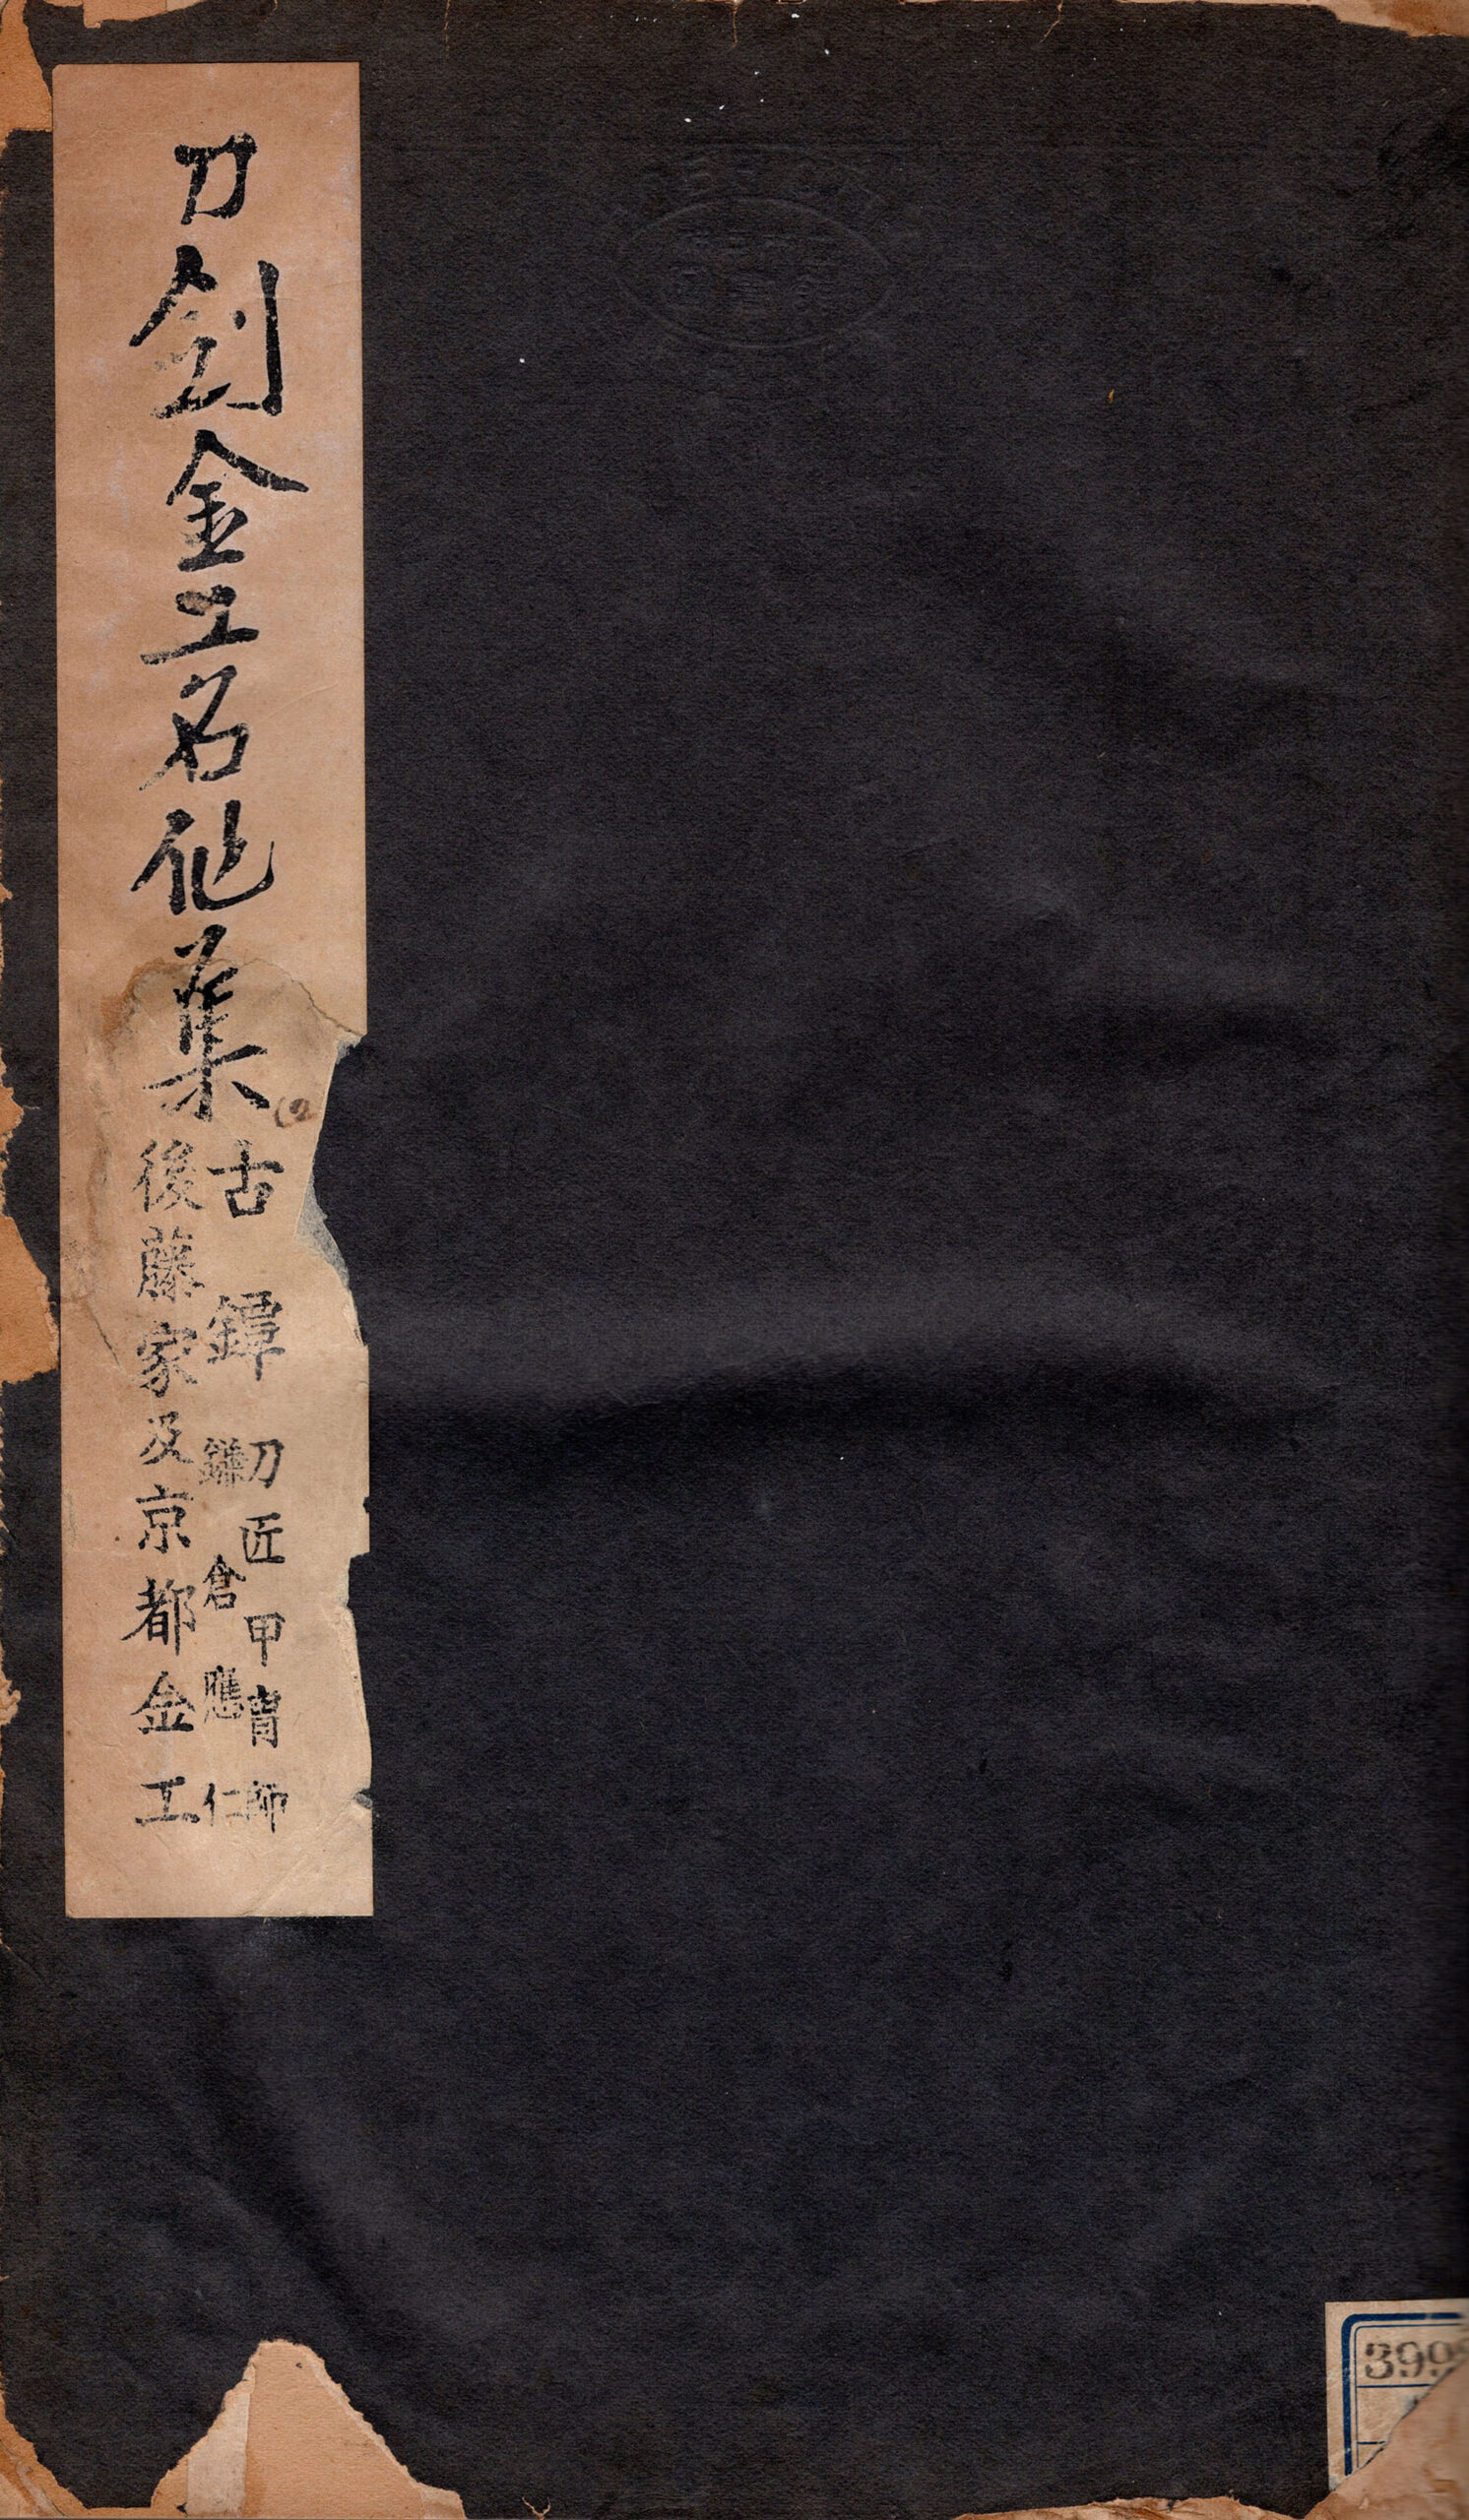 刀剣金工名作集
古鐔 刀匠 甲冑師
鎌倉 應仁
後藤家及京都金工
399